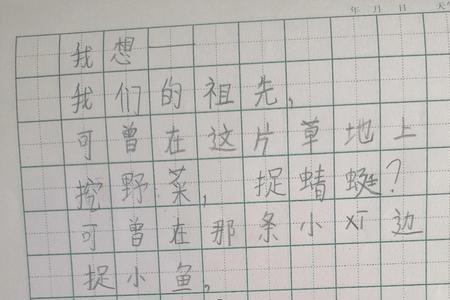 年 月 日 天
我想——
我们的祖先，
可曾在这片草地上
挖野菜，捉蜻蜓？
可曾在那条小 边
捉小鱼，